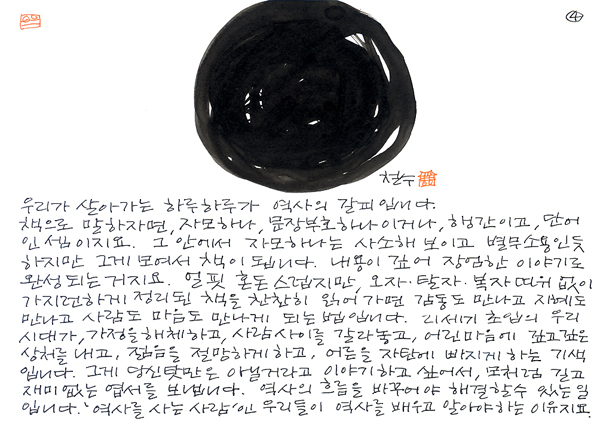 ④
철수
우리가 살아가는 하루하루가 역사의 갈피입니다.
책으로 말하자면, 자모하나, 문장부호하나이거나, 행간이고, 단어
인 셈이지요. 그 안에서 자모하나는 사소해 보이고 별무소용인듯
하지만 그게 모여서 책이 됩니다. 내용이 깊어 장엄한 이야기로
완성되는 거지요. 얼핏 혼돈스럽지만, 오자·탈자·복자 따위 없이
가지런하게 정리된 책을 찬찬히 읽어가면 감동도 만나고 지혜도
만나고 사람도 마음도 만나게 되는 법입니다. 21세기 초입의 우리
시대가, 가정을 해체하고, 사람사이를 갈라놓고, 어린마음에 깊고깊은
상처를 내고, 젊음을 절망하게 하고, 어른을 자탄에 빠지게 하는 기색
입니다. 그게 당신탓만은 아닐거라고 이야기하고 싶어서, 모처럼 길고
재미없는 엽서를 보냅니다. 역사의 흐름을 바꾸어야 해결할수 있는 일
입니다. '역사를 사는 사람'인 우리들이 역사를 배우고 알아야하는 이유지요.